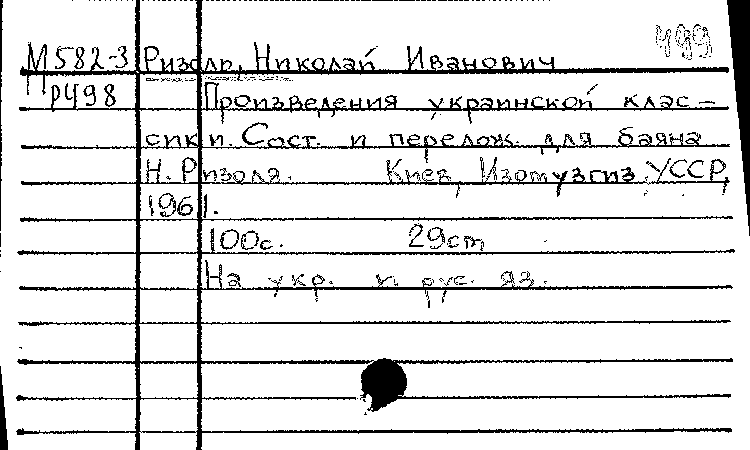 499
М582-3 Ризоль, Николай Иванович
Пр498 Произведения украинской клас-
сики. Сост. и перелож. для баяна
Н. Ризоля. Киев, Изомузгиз УССР,
1961.
100с. 29cm
На укр. и рус. яз.